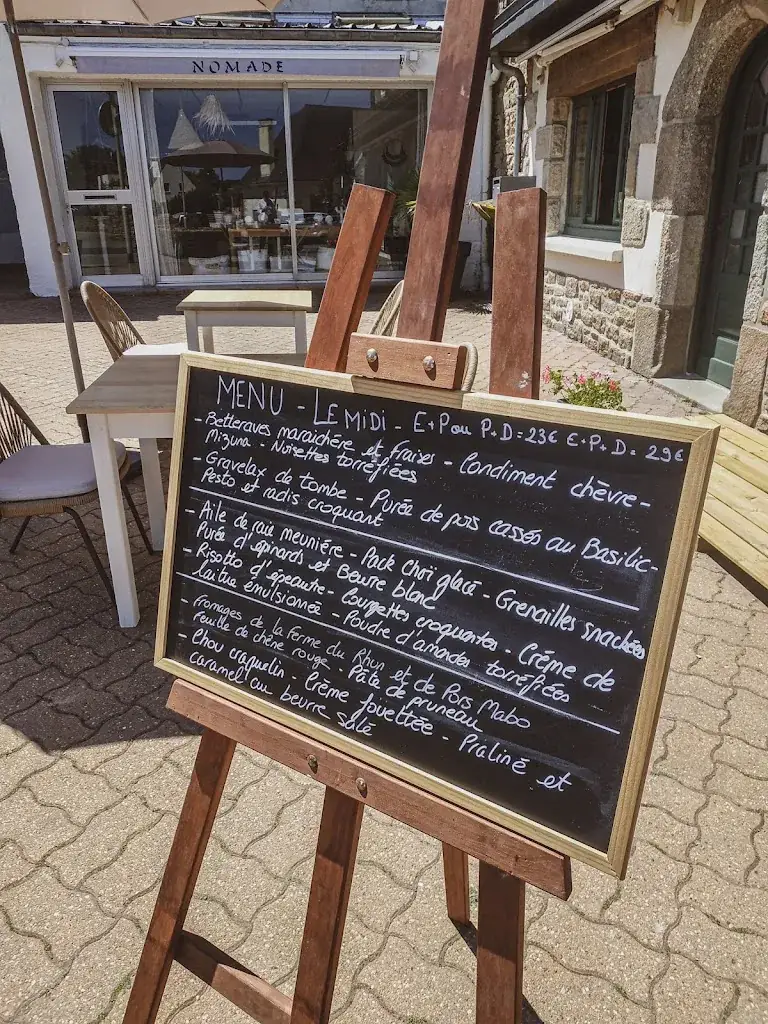 NOMADE
MENU - LE MIDI - E+P ou P+D=23€ E+P+D=29€
- Betteraves maraichère et fraises - Condiment chèvre -
Mizuna - Noisettes torréfiées
- Gravelax de tombe - Purée de pois cassés au Basilic -
Pesto et radis croquant
- Aile de raie meunière - Pack Choï glacé - Grenailles snackées
Purée d'épinards et Beurre blanc
- Risotto d'épeautre - Courgettes croquantes - Crème de
laitue émulsionnée - Poudre d'amandes torréfiées
- Fromages de la Ferme du Rhun et de Pors Mabo
Feuille de chêne rouge - Pâte de pruneau
- Chou craquelin - Crème fouettée - Praliné et
caramel au beurre salé